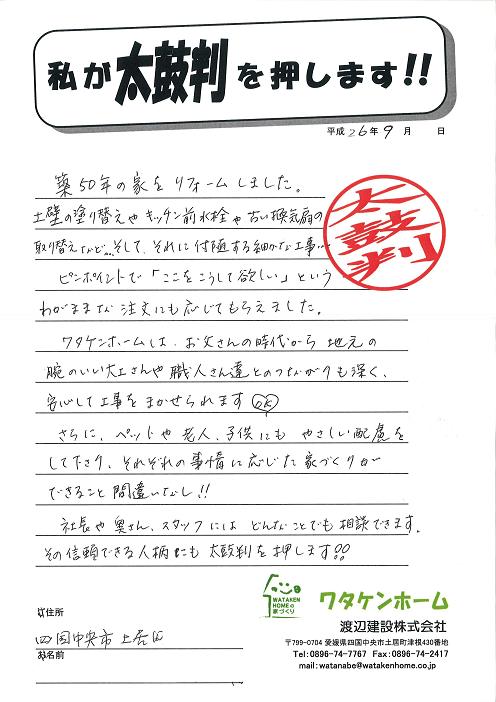 私が太鼓判を押します!!
平成26年9月 日
築50年の家をリフォームしました。
土壁の塗り替えやキッチン前水栓や古い換気扇の
取り替えなど…そして、それに付随する細かな工事…
ピンポイントで「ここをこうして欲しい」という
わがままな注文にも応じてもらえました。
太鼓判
ワタケンホームは、お父さんの時代から地元の
腕のいい大工さんや職人さん達とのつながりも深く、
安心して工事をまかせられます OK
さらに、ペットや老人、子供にもやさしい配慮を
して下さり、それぞれの事情に応じた家づくりが
できること間違いなし!!
社長や奥さん、スタッフにはどんなことでも相談できます。
その信頼できる人柄にも太鼓判を押します!!
WATAKEN
HOMEの
家づくり
ワタケンホーム
渡辺建設株式会社
〒799-0704 愛媛県四国中央市土居町津根430番地
Tel:0896-74-7767 Fax:0896-74-2417
mail:watanabe@watakenhome.co.jp
ご住所
四国中央市土居町
お名前